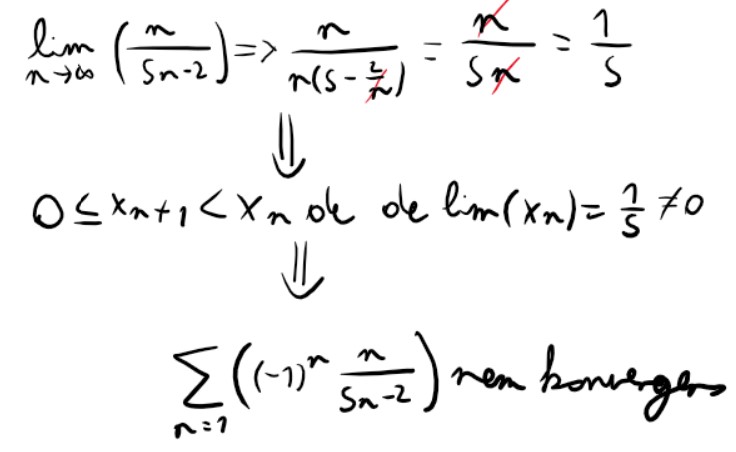 lim n→∞ (n/(5n-2)) => n/(n(5 - 2/n)) = n/(5n) = 1/5
⇓
0 ≤ xn+1 < xn de de lim(xn) = 1/5 ≠ 0
⇓
∑ n=1 ((-1)^n n/(5n-2)) nem konvergens